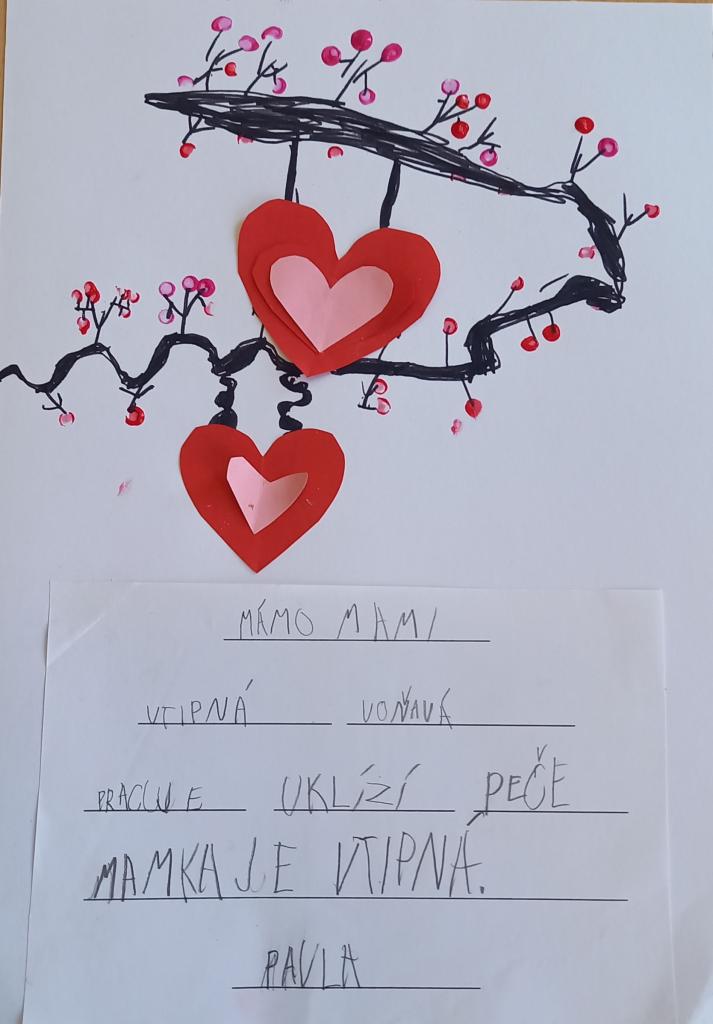 MÁMO MAMI
VTIPNÁ VOŇAVÁ
PRACUJE UKLÍZÍ PEČE
MAMKA JE VTIPNÁ.
PAVLA